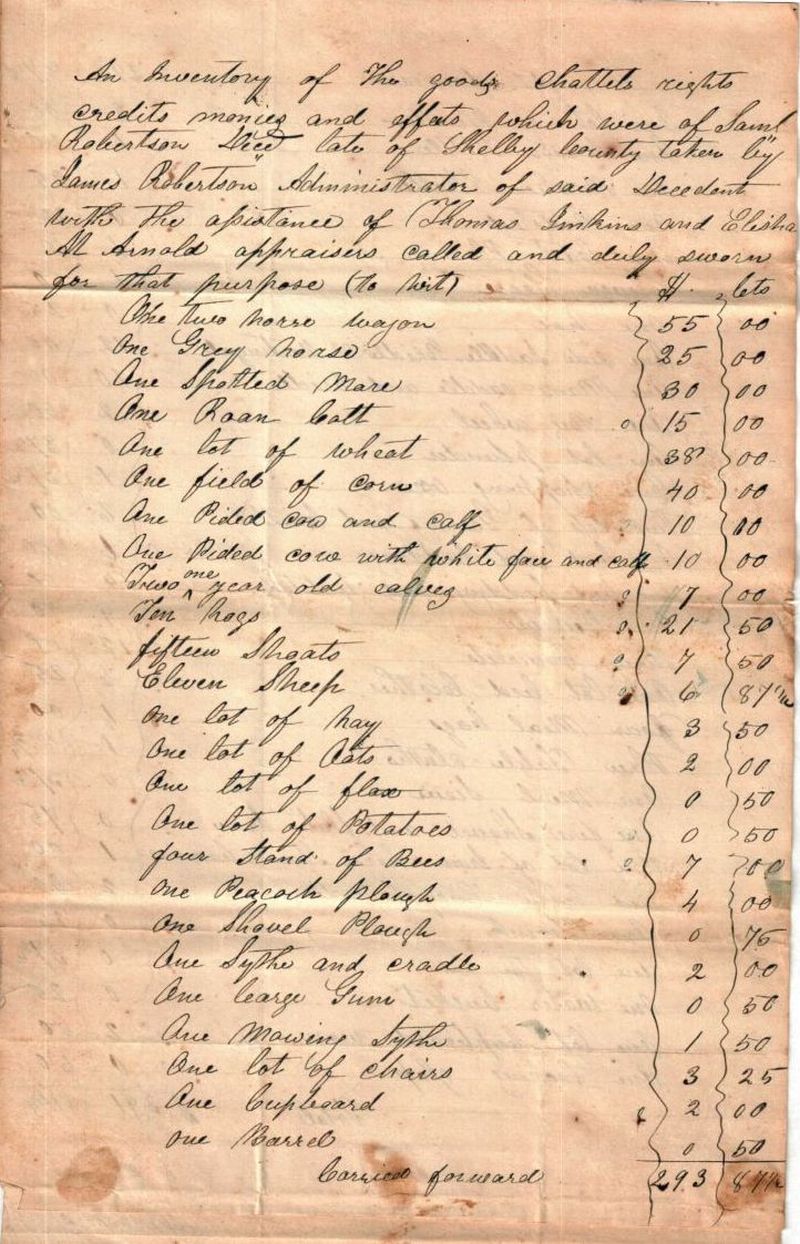 An Inventory of the goods Chattels rights
credits monies and effects which were of Saml
Robertson Decd late of Shelby County taken by
James Robertson Administrator of said Decedent
with the assistance of Thomas Jinkins and Elisha
M Arnold appraisers called and duly sworn
for that purpose (to wit) $. cts
One two horse wagon 55 00
One Grey horse 25 00
One Spotted Mare 30 00
One Roan Colt 15 00
One lot of wheat 38 00
One field of corn 40 00
One Pided cow and calf 10 00
One Pided cow with white face and calf 10 00
Two one year old calves 7 00
Ten hogs 21 50
fifteen Shoats 7 50
Eleven Sheep 6 87 1/2
One lot of hay 3 50
One lot of Oats 2 00
One lot of flax 0 50
One lot of Potatoes 0 50
four Stand of Bees 7 00
One Peacock plough 4 00
One Shovel Plough 0 75
One Sythe and cradle 2 00
One learge Gum 0 50
One Mowing Sythe 1 50
One lot of chairs 3 25
One Cupboard 2 00
One Barrel 0 50
Carried forward 293 87 1/2